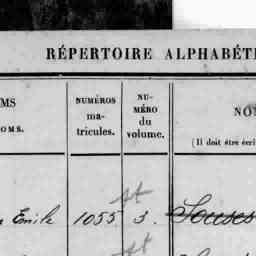 RÉPERTOIRE ALPHABÉTI
MS
OMS.
NUMÉROS
ma-
tricules.
NU-
MÉRO
du
volume.
NO
(Il doit être écri
st
Emile 1055 3.
st